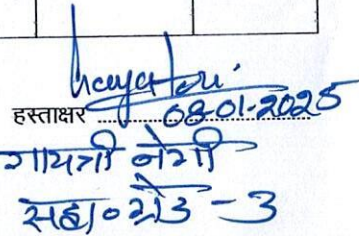 Gayatri
हस्ताक्षर ........ 08-01-2025
गायत्री नेगी
सहा० ग्रेड - 3